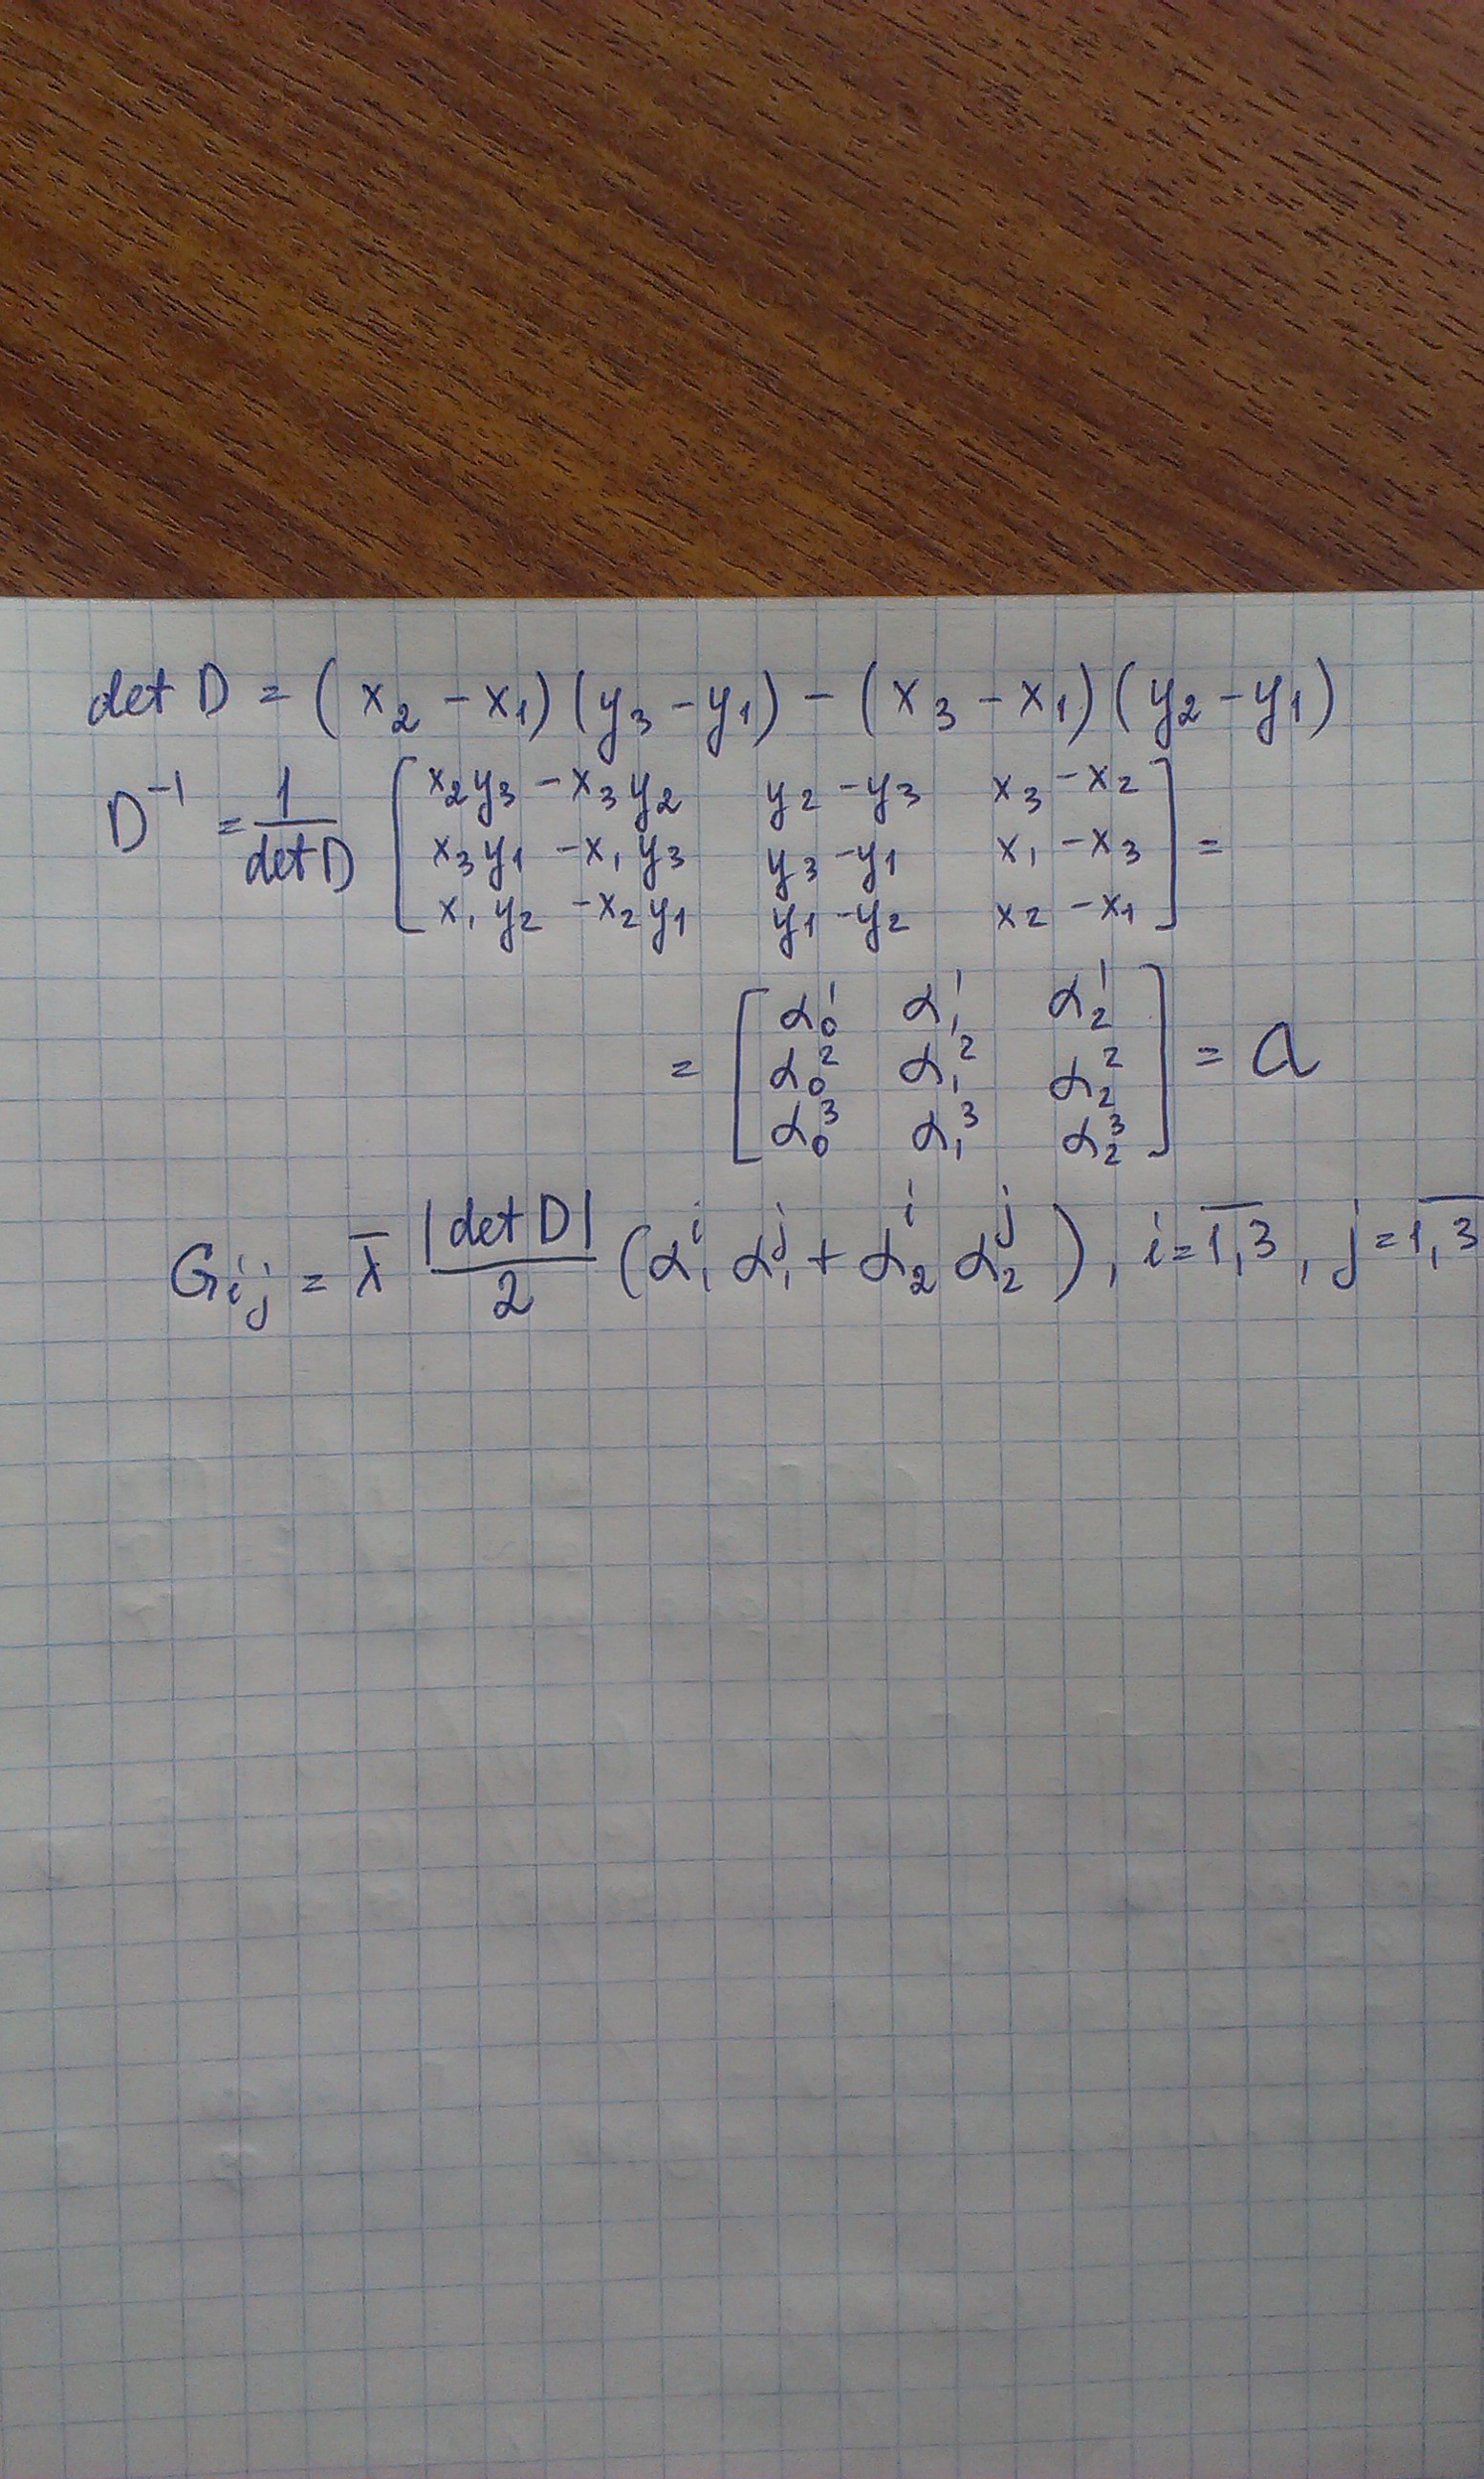 det D = (x₂ - x₁)(y₃ - y₁) - (x₃ - x₁)(y₂ - y₁)
D⁻¹ = 1/det D [x₂y₃ - x₃y₂  y₂ - y₃  x₃ - x₂
x₃y₁ - x₁y₃  y₃ - y₁  x₁ - x₃
x₁y₂ - x₂y₁  y₁ - y₂  x₂ - x₁] =
= [α₀¹  α₁¹  α₂¹
α₀²  α₁²  α₂²
α₀³  α₁³  α₂³] = a
G_ij = λ̄ |det D|/2 (α₁ⁱ α₁ʲ + α₂ⁱ α₂ʲ), i = 1,3̅, j = 1,3̅